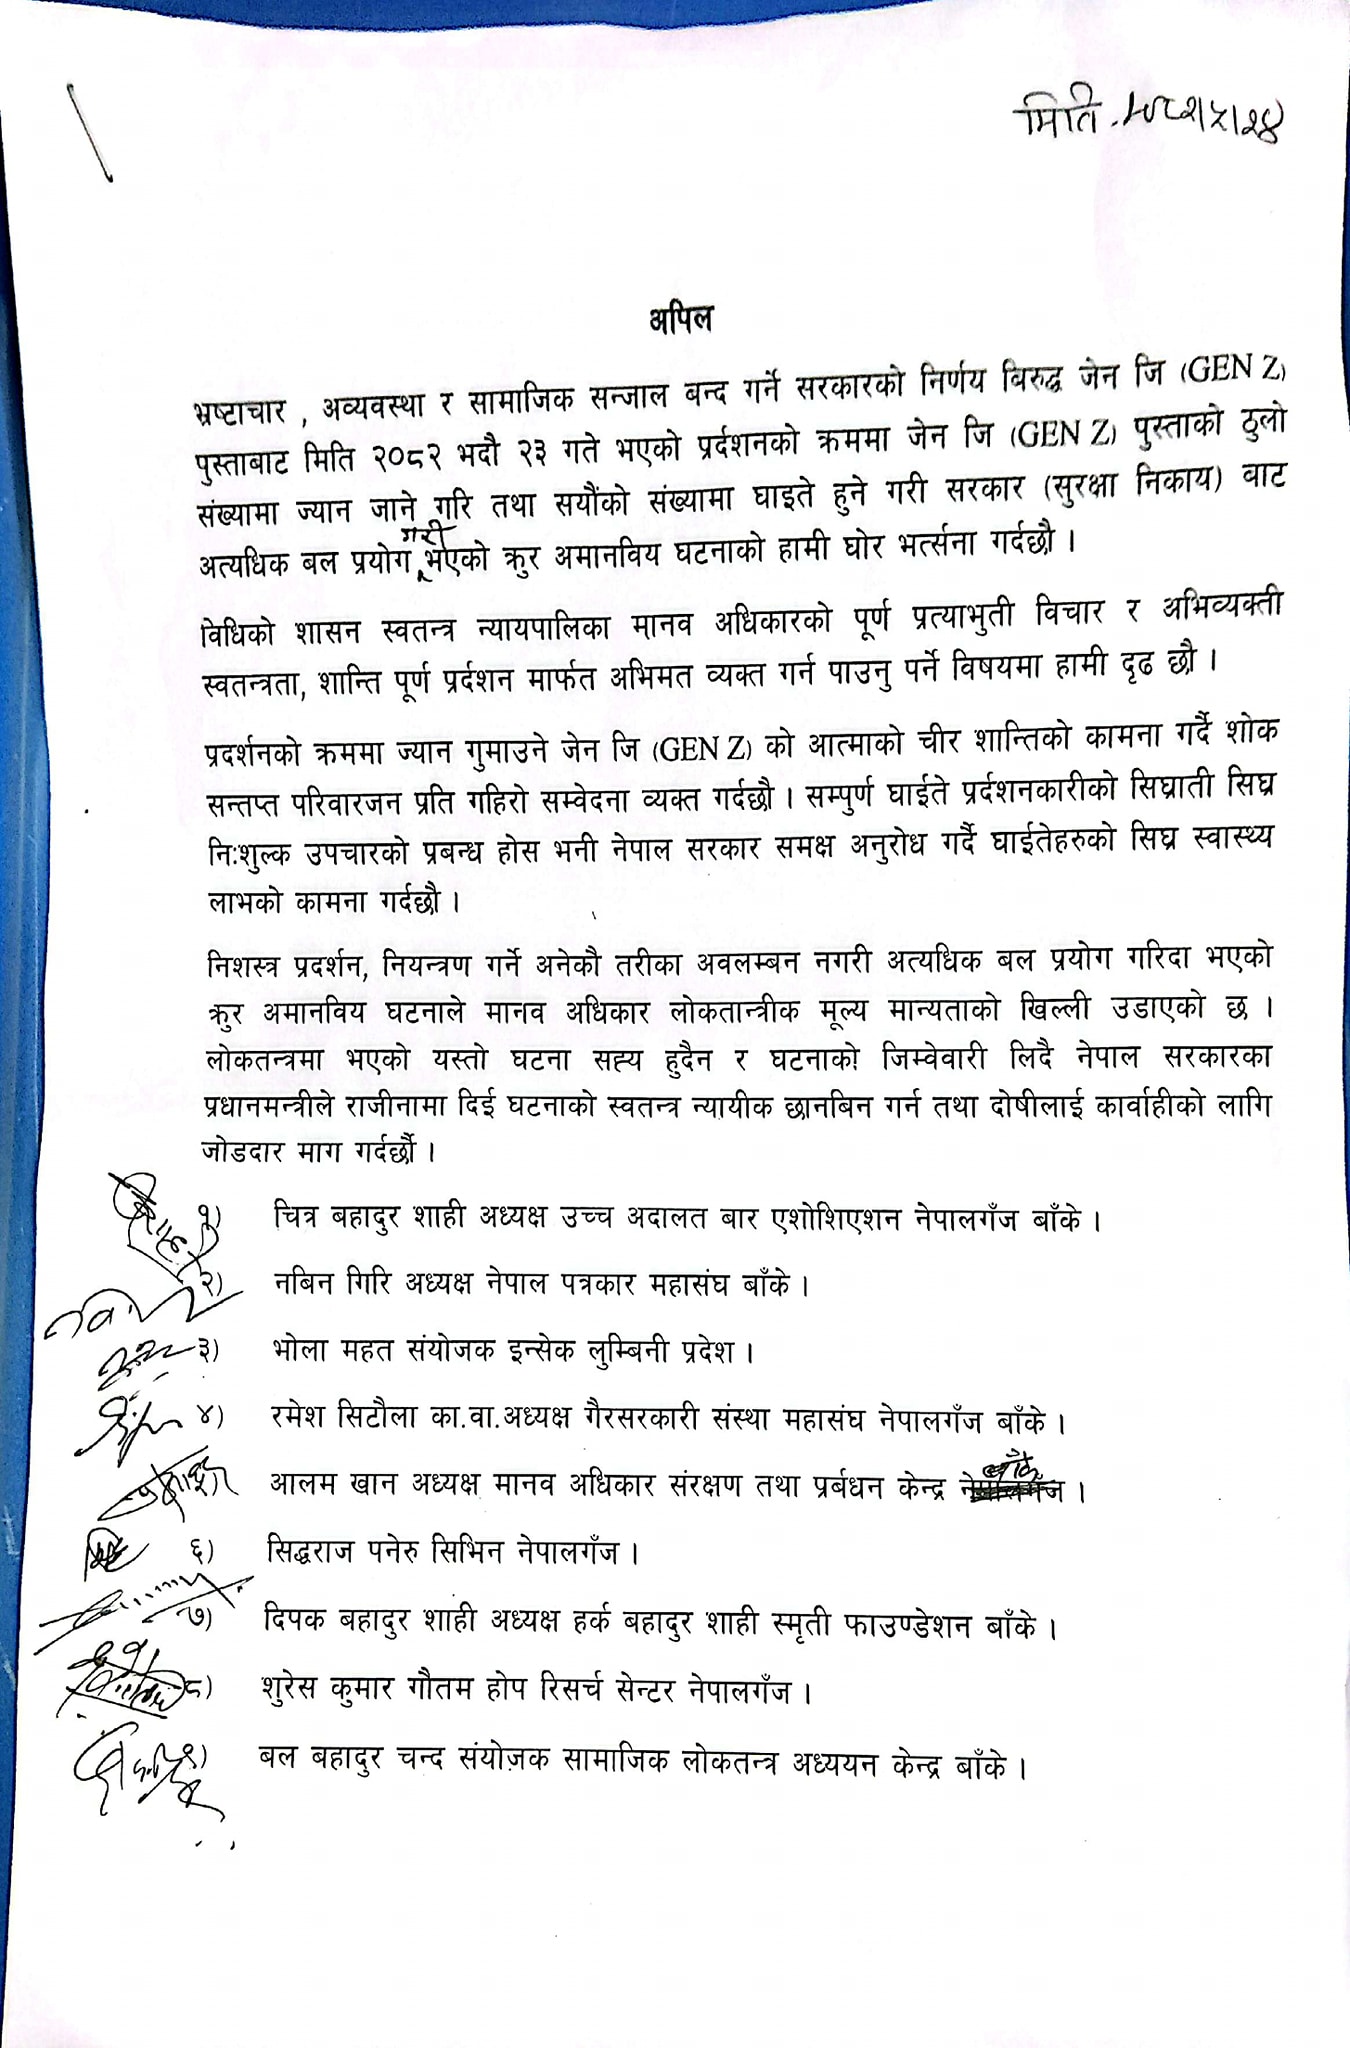 मिति. २०८२।५।२४
अपिल
भ्रष्टाचार , अव्यवस्था र सामाजिक सन्जाल बन्द गर्ने सरकारको निर्णय विरुद्ध जेन जि (GEN Z)
पुस्ताबाट मिति २०८२ भदौ २३ गते भएको प्रर्दशनको क्रममा जेन जि (GEN Z) पुस्ताको ठुलो
संख्यामा ज्यान जाने गरि तथा सयौंको संख्यामा घाइते हुने गरी सरकार (सुरक्षा निकाय) बाट
अत्यधिक बल प्रयोग गरी भएको क्रुर अमानविय घटनाको हामी घोर भर्त्सना गर्दछौ ।
विधिको शासन स्वतन्त्र न्यायपालिका मानव अधिकारको पूर्ण प्रत्याभुती विचार र अभिव्यक्ती
स्वतन्त्रता, शान्ति पूर्ण प्रर्दशन मार्फत अभिमत व्यक्त गर्न पाउनु पर्ने विषयमा हामी दृढ छौ ।
प्रदर्शनको क्रममा ज्यान गुमाउने जेन जि (GEN Z) को आत्माको चीर शान्तिको कामना गर्दै शोक
सन्तप्त परिवारजन प्रति गहिरो सम्वेदना व्यक्त गर्दछौ । सम्पुर्ण घाईते प्रर्दशनकारीको सिघ्राती सिघ्र
नि:शुल्क उपचारको प्रबन्ध होस भनी नेपाल सरकार समक्ष अनुरोध गर्दै घाईतेहरुको सिघ्र स्वास्थ्य
लाभको कामना गर्दछौ ।
निशस्त्र प्रदर्शन, नियन्त्रण गर्ने अनेकौ तरीका अवलम्बन नगरी अत्यधिक बल प्रयोग गरिदा भएको
क्रुर अमानविय घटनाले मानव अधिकार लोकतान्त्रीक मूल्य मान्यताको खिल्ली उडाएको छ ।
लोकतन्त्रमा भएको यस्तो घटना सह्य हुदैन र घटनाको जिम्वेवारी लिदै नेपाल सरकारका
प्रधानमन्त्रीले राजीनामा दिई घटनाको स्वतन्त्र न्यायीक छानबिन गर्न तथा दोषीलाई कार्वाहीको लागि
जोडदार माग गर्दर्छौ ।
१) चित्र बहादुर शाही अध्यक्ष उच्च अदालत बार एशोशिएशन नेपालगँज बाँके ।
२) नबिन गिरि अध्यक्ष नेपाल पत्रकार महासंघ बाँके ।
३) भोला महत संयोजक इन्सेक लुम्बिनी प्रदेश ।
४) रमेश सिटौला का.वा.अध्यक्ष गैरसरकारी संस्था महासंघ नेपालगँज बाँके ।
५) आलम खान अध्यक्ष मानव अधिकार संरक्षण तथा प्रर्बधन केन्द्र बाँके ।
६) सिद्धराज पनेरु सिभिन नेपालगँज ।
७) दिपक बहादुर शाही अध्यक्ष हर्क बहादुर शाही स्मृती फाउण्डेशन बाँके ।
८) शुरेस कुमार गौतम होप रिसर्च सेन्टर नेपालगँज ।
९) बल बहादुर चन्द संयोजक सामाजिक लोकतन्त्र अध्ययन केन्द्र बाँके ।